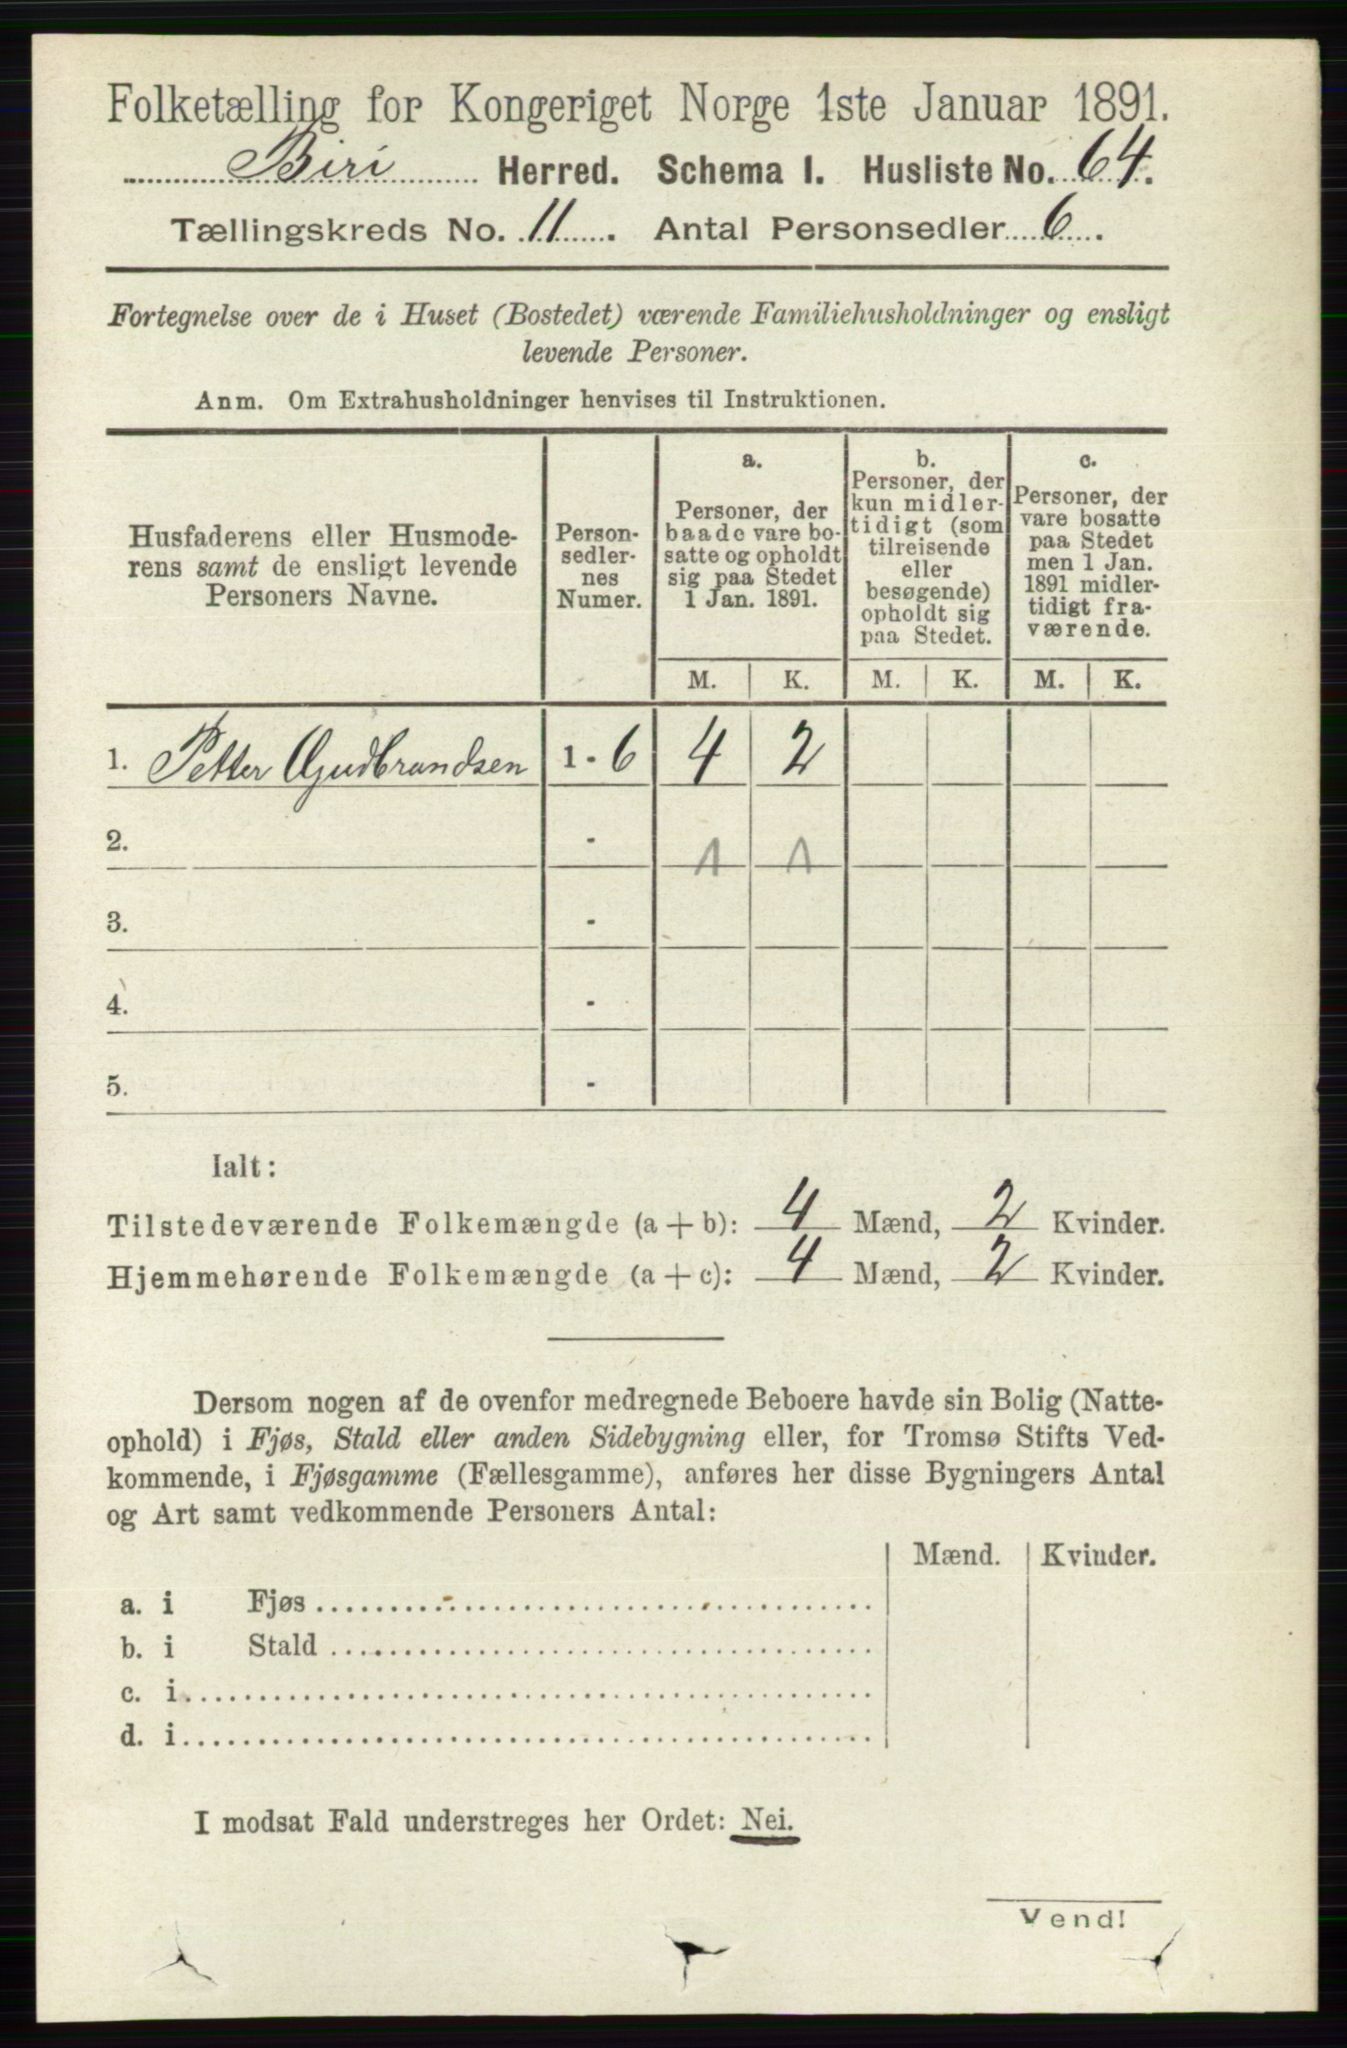 Folketælling for Kongeriget Norge 1ste Januar 1891.
Biri Herred. Schema I. Husliste No. 64.
Tællingskreds No. 11. Antal Personsedler 6.
Fortegnelse over de i Huset (Bostedet) værende Familiehusholdninger og ensligt
levende Personer.
Anm. Om Extrahusholdninger henvises til Instruktionen.
Husfaderens eller Husmode-
rens samt de ensligt levende
Personers Navne.
Person-
sedler-
nes
Numer.
a.
Personer, der
baade vare bo-
satte og opholdt
sig paa Stedet
1 Jan. 1891.
b.
Personer, der
kun midler-
tidigt (som
tilreisende
eller
besøgende)
opholdt sig
paa Stedet.
c.
Personer, der
vare bosatte
paa Stedet
men 1 Jan.
1891 midler-
tidigt fra-
værende.
M. K. M. K. M. K.
1. Petter Gudbrandsen 1 - 6 4 2
2. - 1 1
3. -
4. -
5. -
Ialt:
Tilstedeværende Folkemængde (a + b): 4 Mænd, 2 Kvinder.
Hjemmehørende Folkemængde (a + c): 4 Mænd, 2 Kvinder.
Dersom nogen af de ovenfor medregnede Beboere havde sin Bolig (Natte-
ophold) i Fjøs, Stald eller anden Sidebygning eller, for Tromsø Stifts Ved-
kommende, i Fjøsgamme (Fællesgamme), anføres her disse Bygningers Antal
og Art samt vedkommende Personers Antal:
Mænd. Kvinder.
a. i Fjøs
b. i Stald
c. i
d. i
I modsat Fald understreges her Ordet: Nei.
Vend!